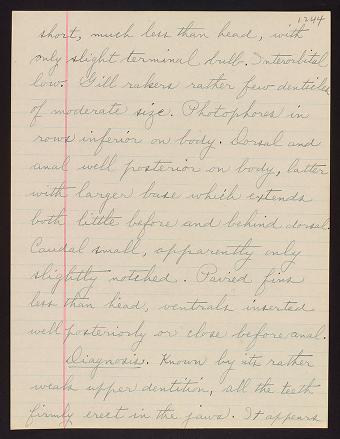 1244
short, much less than head, with
only slight terminal bulb. Interorbital
low. Gill rakers rather few denticles
of moderate size. Photophores in
rows inferior on body. Dorsal and
anal well posterior on body, latter
with larger base which extends
both little before and behind dorsal.
Caudal small, apparently only
slightly notched. Paired fins
less than head, ventrals inserted
well posteriorly or close before anal.
Diagnosis. Known by its rather
weak upper dentition, all the teeth
firmly erect in the jaws. It appears